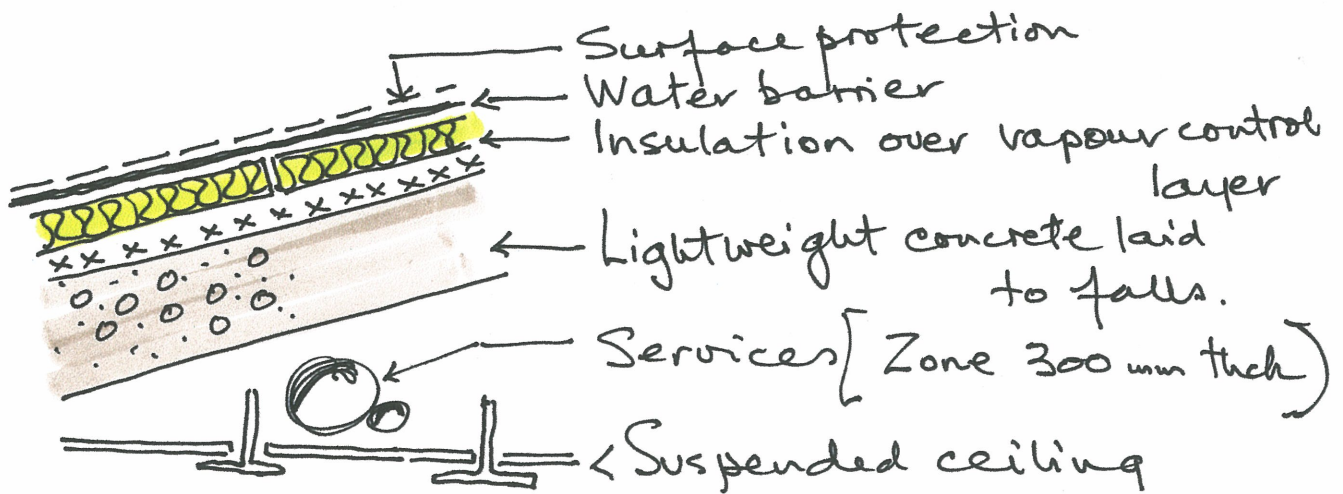 Surface protection
Water barrier
Insulation over vapour control
layer
Lightweight concrete laid
to falls.
Services [Zone 300 mm thck)
Suspended ceiling